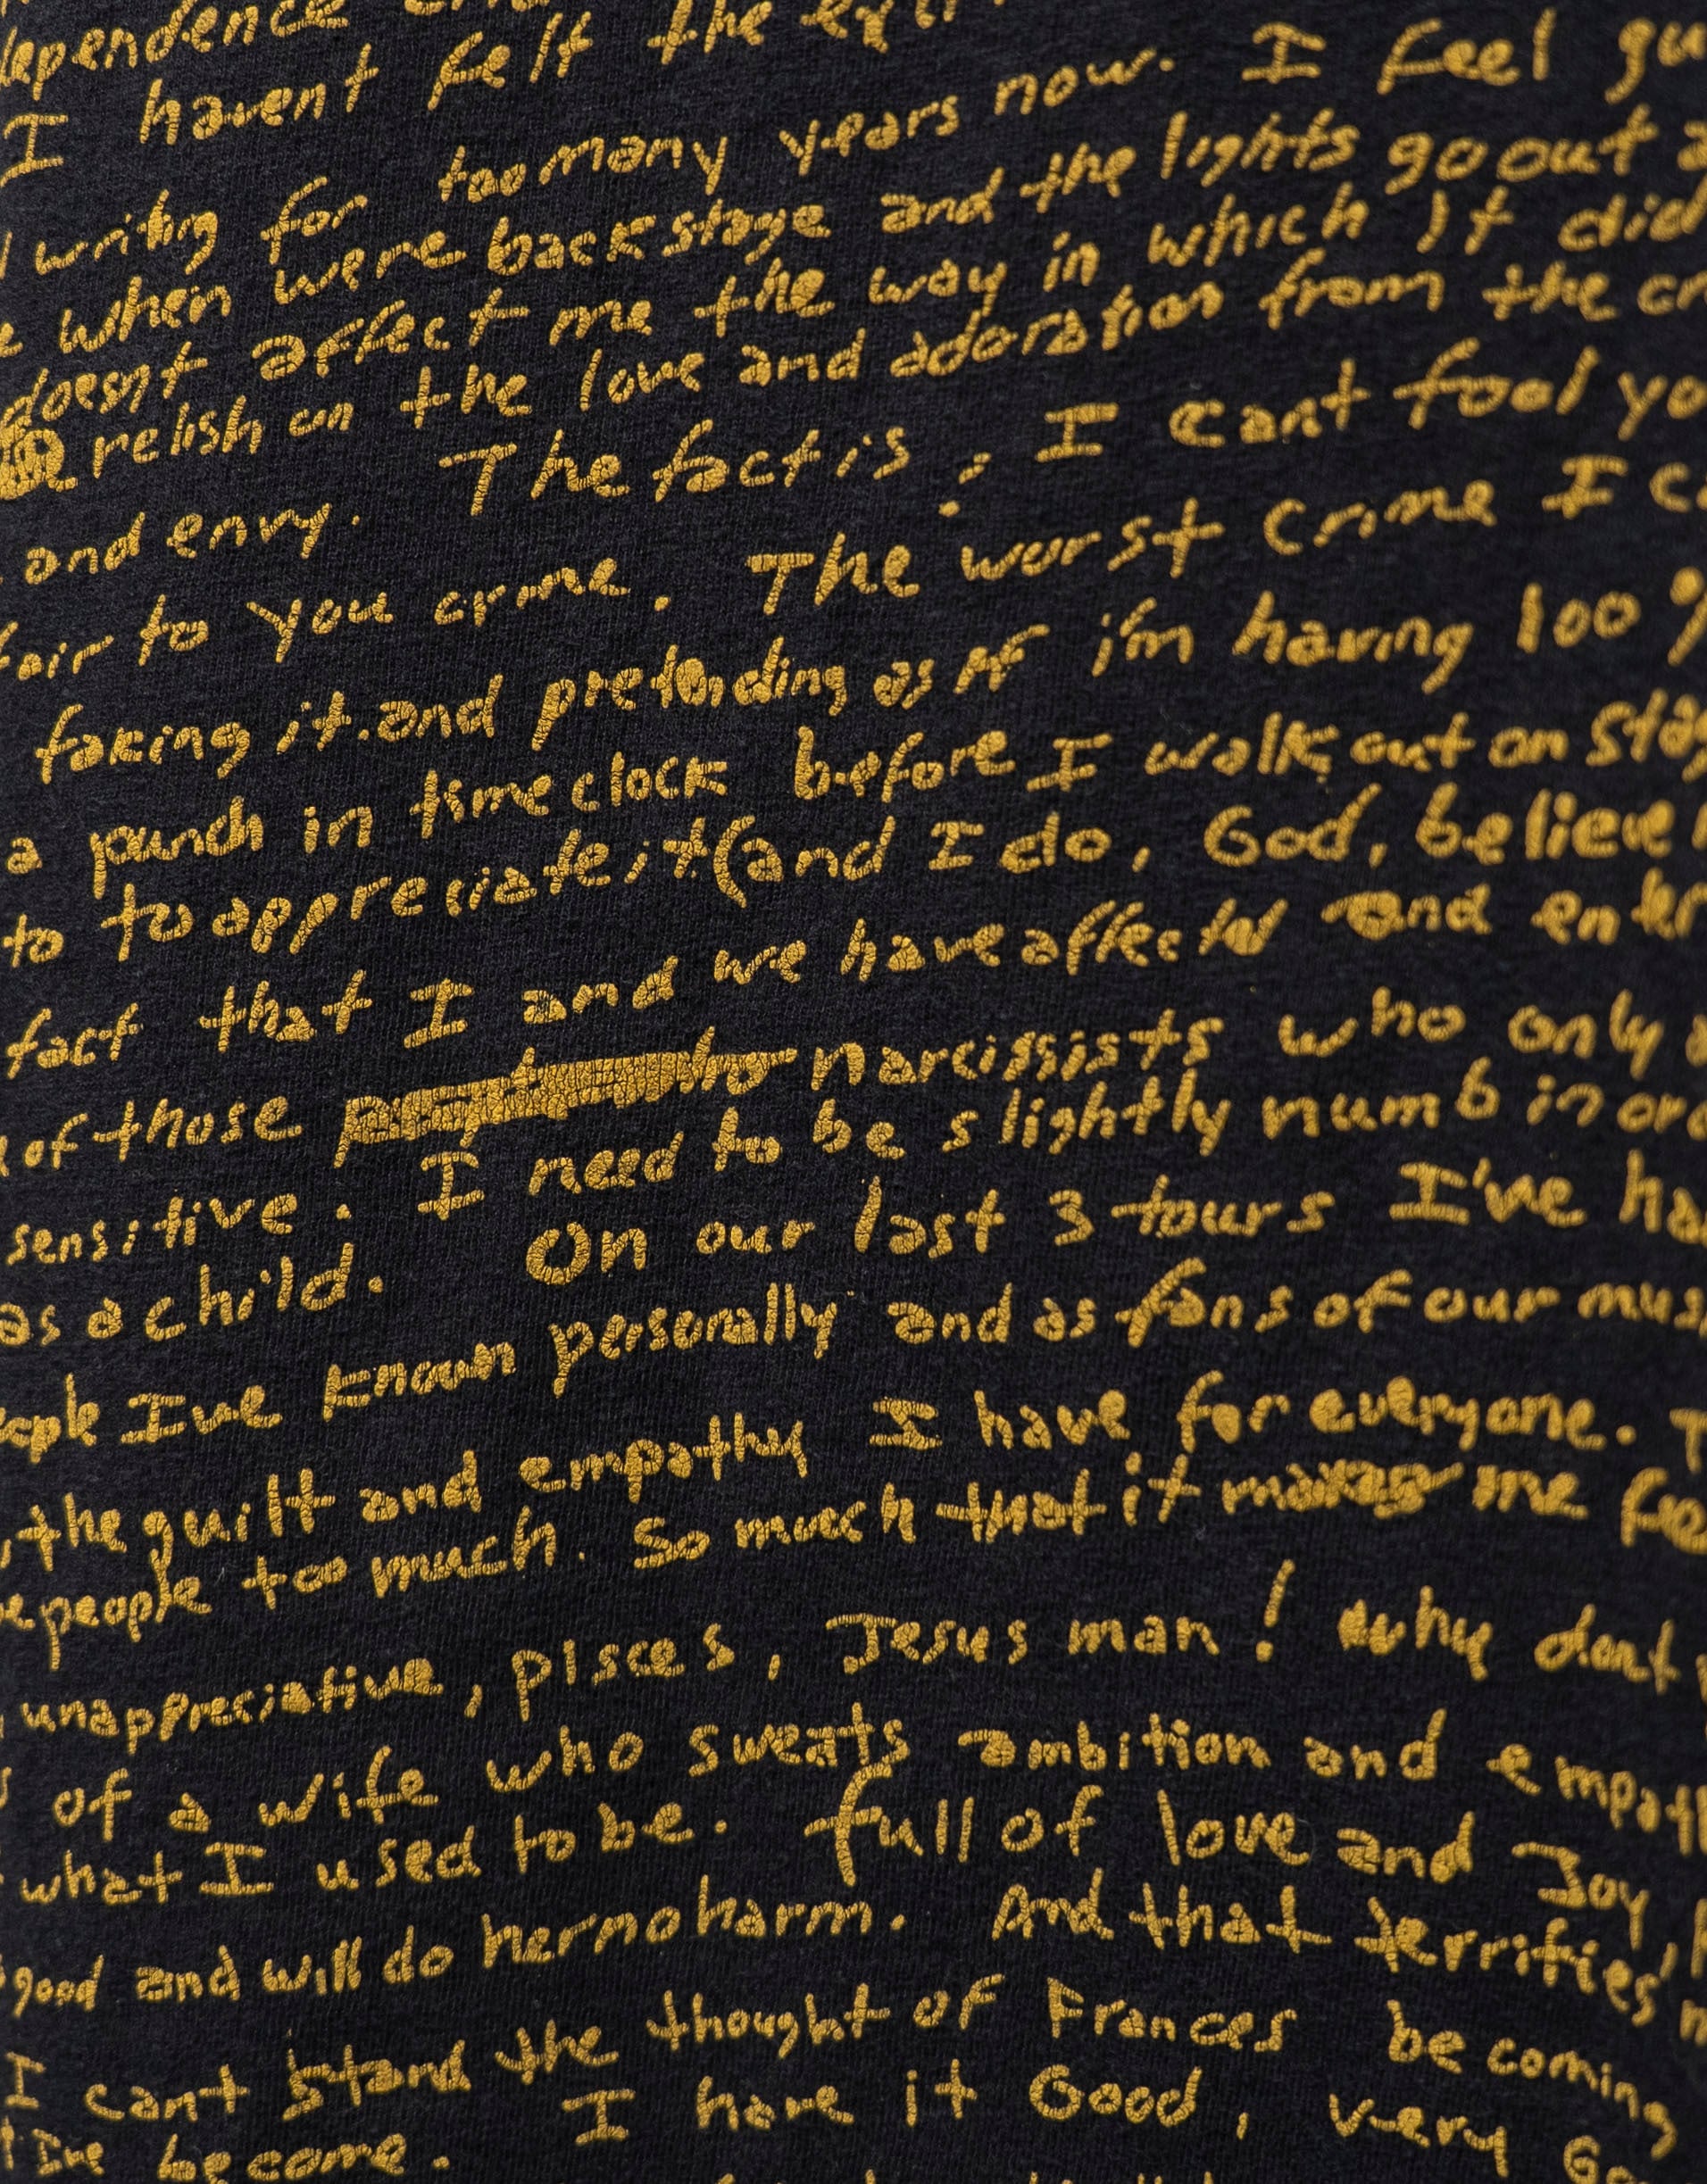 dependence
I havent felt the
writing for too many years now. I feel
when were backstage and the lights go out
doesnt affect me the way in which It did
relish on the love and adoration from the
and envy. The fact is, I cant fool
fair to you or me. The worst crime I
faking it and pretending as if i'm having 100%
a punch in time clock before I walk out on
to to appreciate it (and I do, God, believe
fact that I and we have affected and
of those narcissists who only
sensitive. I need to be slightly numb in
as a child. On our last 3 tours I've
I've known personally and as fans of our
the guilt and empathy I have for everyone.
people too much. So much that it makes me
unappreciative, pisces, Jesus man! why dont
of a wife who sweats ambition and
what I used to be. full of love and Joy,
good and will do her no harm. And that terrifies
I can't stand the thought of Frances becoming
I've become. I have it Good, very